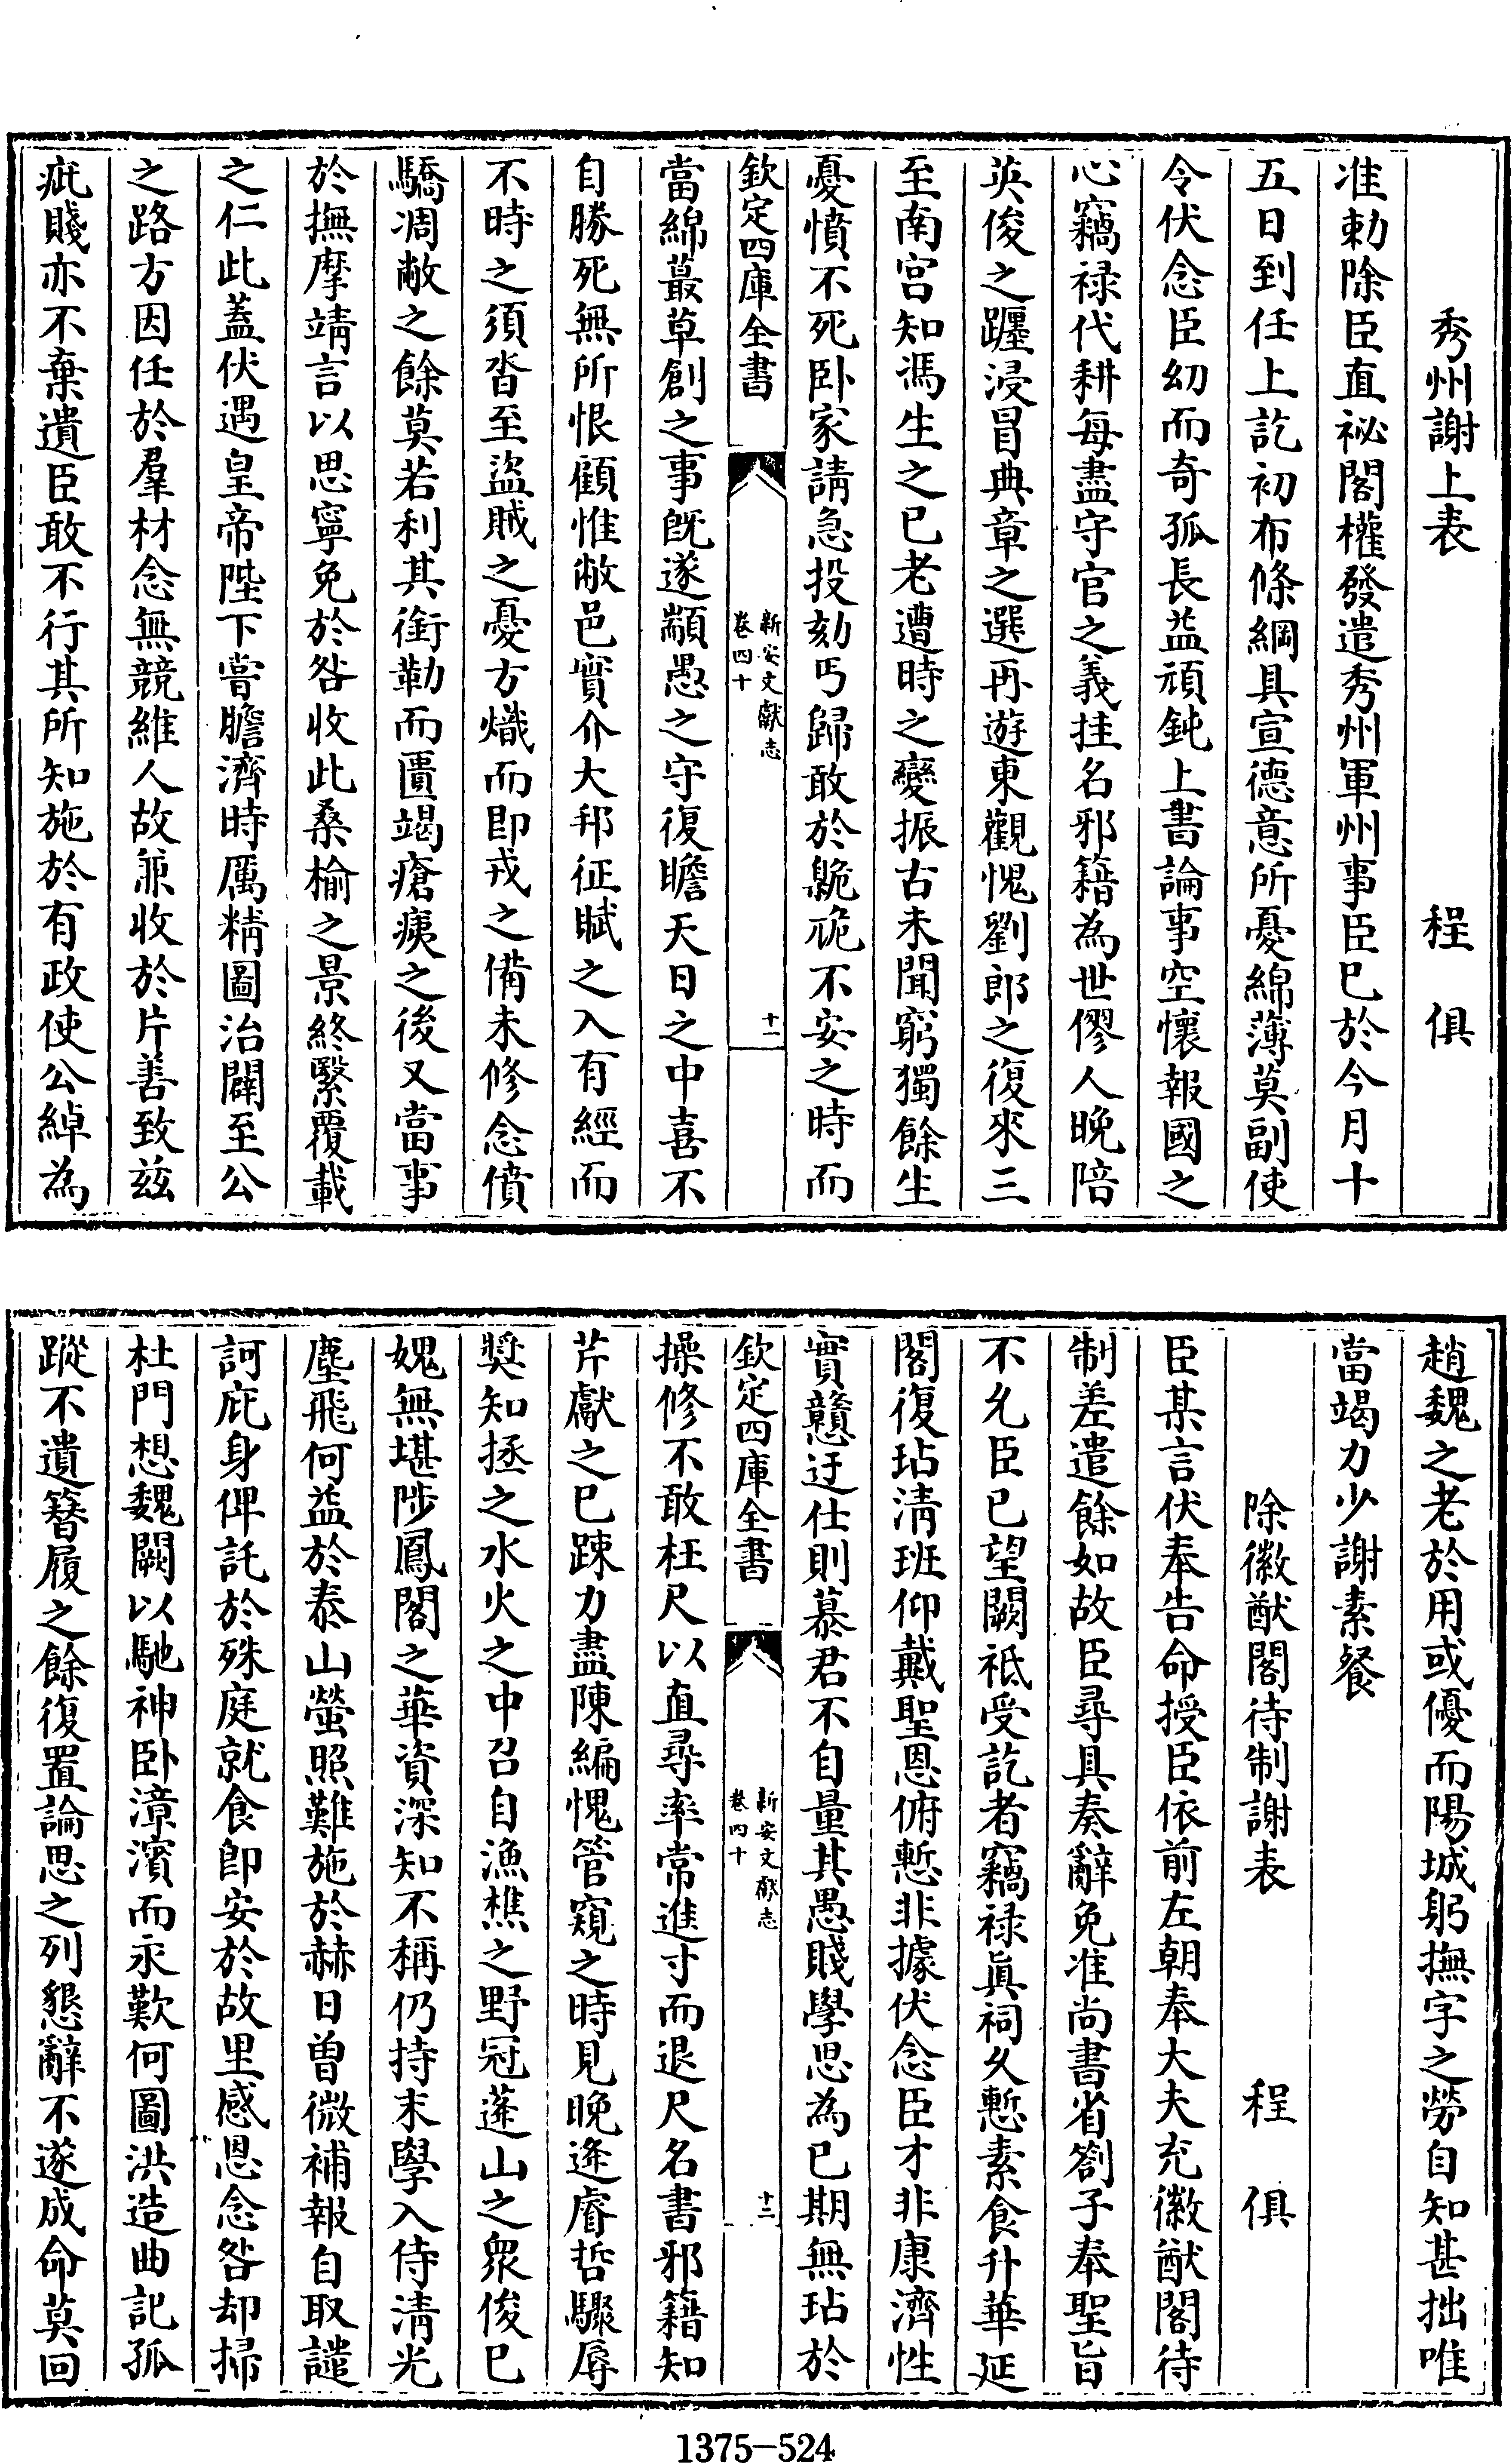 秀州謝上表　程俱
准勅除臣直祕閣權發遣秀州軍州事臣已於今月十
五日到任上訖初布條綱具宣德意所憂綿薄莫副使
令伏念臣幼而奇孤長益頑鈍上書論事空懷報國之
心竊禄代耕每盡守官之義挂名邪籍為世僇人晚陪
英俊之躔浸冒典章之選再遊東觀愧劉郎之復來三
至南宫知馮生之已老遭時之變振古未聞窮獨餘生
憂憤不死卧家請急投劾丐歸敢於臲卼不安之時而
欽定四庫全書
新安文獻志
卷四十
十一
當綿蕞草創之事既遂顓愚之守復瞻天日之中喜不
自勝死無所恨顧惟敝邑實介大邦征賦之入有經而
不時之須沓至盜賊之憂方熾而即戎之備未修念僨
驕凋敝之餘莫若利其銜勒而匱竭瘡痍之後又當事
於撫摩靖言以思寧免於咎收此桑榆之景終緊覆載
之仁此蓋伏遇皇帝陛下嘗膽濟時厲精圖治闢至公
之路方因任於羣材念無競維人故兼收於片善致兹
疵賤亦不棄遺臣敢不行其所知施於有政使公綽為
趙魏之老於用或優而陽城躬撫字之勞自知甚拙唯
當竭力少謝素餐
除徽猷閣待制謝表　程俱
臣某言伏奉告命授臣依前左朝奉大夫充徽猷閣待
制差遣餘如故臣尋具奏辭免准尚書省劄子奉聖旨
不允臣已望闕祗受訖者竊禄真祠久慙素食升華延
閣復玷清班仰戴聖恩俯慙非據伏念臣才非康濟性
實戇迂仕則慕君不自量其愚賤學思為已期無玷於
欽定四庫全書
新安文獻志
卷四十
十二
操修不敢枉尺以直尋率常進寸而退尺名書邪籍知
芹獻之已踈力盡陳編愧管窺之時見晚逢睿哲驟辱
奬知拯之水火之中召自漁樵之野冠蓬山之衆俊已
媿無堪陟鳳閣之華資深知不稱仍持末學入侍清光
塵飛何益於泰山螢照難施於赫日曾微補報自取譴
訶庇身俾託於殊庭就食即安於故里感恩念咎却掃
杜門想魏闕以馳神卧漳濱而永歎何圖洪造曲記孤
蹤不遺簪履之餘復置論思之列懇辭不遂成命莫回
1375-524